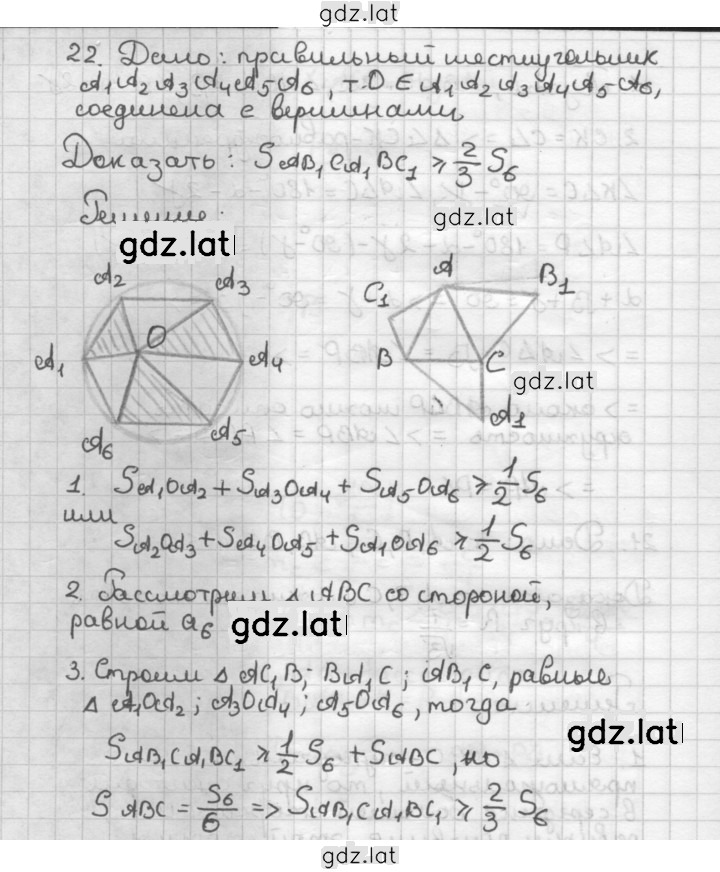 gdz.lat
22. Дано: правильный шестиугольник
A₁A₂A₃A₄A₅A₆, т.O ∈ A₁A₂A₃A₄A₅A₆,
соединена с вершинами
Доказать: S AB₁CA₁BC₁ ≥ 2/3 S₆
Решение:
gdz.lat
gdz.lat
A₂
A₃
O
A₁
A₄
A₆
A₅
A
B₁
C₁
B
C
gdz.lat
A₁
1. S A₁OA₂ + S A₃OA₄ + S A₅OA₆ ≥ 1/2 S₆
или
S A₂OA₃ + S A₄OA₅ + S A₁OA₆ ≥ 1/2 S₆
2. Рассмотрим △ ABC со стороной,
равной a₆
gdz.lat
3. Строим △ AC₁B; BA₁C; AB₁C, равные
△ A₁OA₂; A₃OA₄; A₅OA₆, тогда
gdz.lat
S AB₁CA₁BC₁ ≥ 1/2 S₆ + S ABC, но
S ABC = S₆/6 => S AB₁CA₁BC₁ ≥ 2/3 S₆
gdz.lat